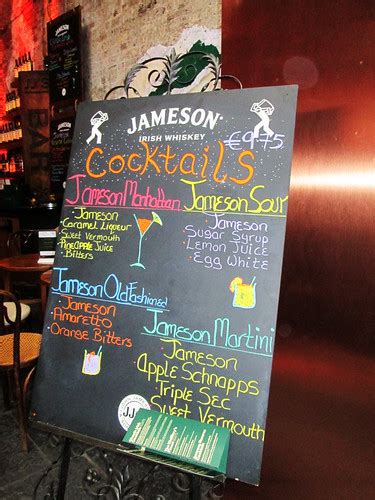 JAMESON
IRISH WHISKEY
€9.75
Cocktails
Jameson Manhattan
• Jameson
• Caramel Liqueur
• Sweet Vermouth
• Pineapple Juice
• Bitters
Jameson Sour
• Jameson
• Sugar Syrup
• Lemon Juice
• Egg White
Jameson Old Fashioned
• Jameson
• Amaretto
• Orange Bitters
Jameson Martini
• Jameson
• Apple Schnapps
• Triple Sec
• Sweet Vermouth
JAMESON
BAR